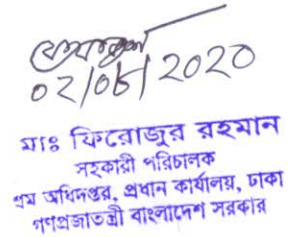 ০২/০৮/২০২০
মোঃ ফিরোজুর রহমান
সহকারী পরিচালক
শ্রম অধিদপ্তর, প্রধান কার্যালয়, ঢাকা
গণপ্রজাতন্ত্রী বাংলাদেশ সরকার